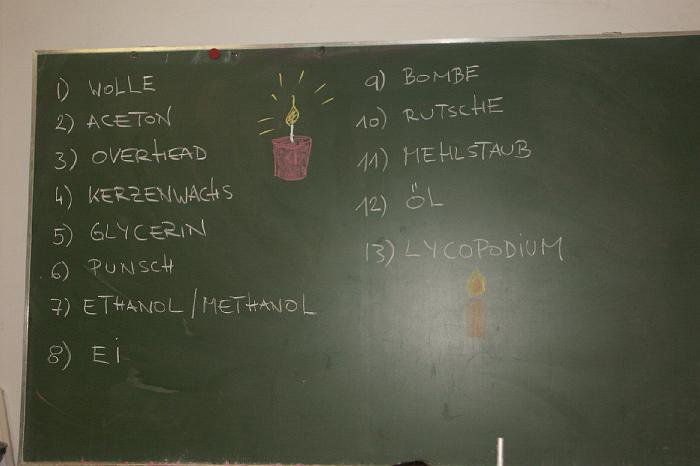 1) WOLLE
2) ACETON
3) OVERHEAD
4) KERZENWACHS
5) GLYCERIN
6) PUNSCH
7) ETHANOL/METHANOL
8) Ei
9) BOMBE
10) RUTSCHE
11) MEHLSTAUB
12) ÖL
13) LYCOPODiUM